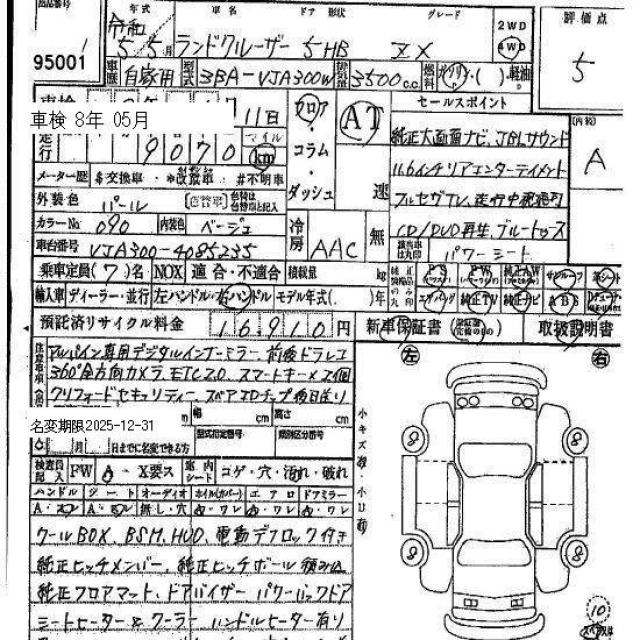 出品番号
年式 車名 ドア 形状 グレード
2WD 4WD
評価点
95001
令和 5/5月 ランドクルーザー 5HB ZX
5
車歴 自家用 型式 3BA-VJA300W 排気量 3500cc 燃料 ガソリン・( )・軽油
車検 8年 05月 11日
フロア・コラム・ダッシュ
AT
セールスポイント
走行 9070 マイル km
純正大画面ナビ、JBLサウンド
内装 A
11.6インチリアエンターテイメント
メーター歴 $交換車・*改ざん車・#不明車
フルセグTV、走行中視聴可
外装色 パール
カラーNo 090 内装色 ベージュ
冷房 AAC 無
CD/DVD再生、ブルートゥース
車台番号 VJA300-4085235
パワーシート
乗車定員(7)名 NOX 適合・不適合 積載量 kg
PS PW 純正AW サンルーフ 革シート
輸入車 ディーラー・並行 左ハンドル・右ハンドル モデル年式( )年
エアバッグ 純正TV 純正ナビ ABS
預託済リサイクル料金 16910円
新車保証書 取扱説明書
左 右
アルパイン専用デジタルインナーミラー、前後ドラレコ
360°全方向カメラ、ETC2.0、スマートキー×2個
クリフォードセキュリティー、スペアIDチップ後日送り
名変期限2025-12-31
幅 cm 高さ cm
日までに名変できる方
型式指定番号 類別区分番号
小キズ有、小凹有
検査員記入 PW A・X要ス 室内シート コゲ・穴・汚れ・破れ
ハンドル シート オーディオ ホイル(カバー) エアロ ドアミラー
クールBOX、BSM、HUD、電動デフロック付き
純正ヒッチメンバー、純正ヒッチボール積み込
純正フロアマット、ドアバイザー パワーバックドア
シートヒーター&クーラー ハンドルヒーター有り
8 8
8 8
10
スペアタイヤ